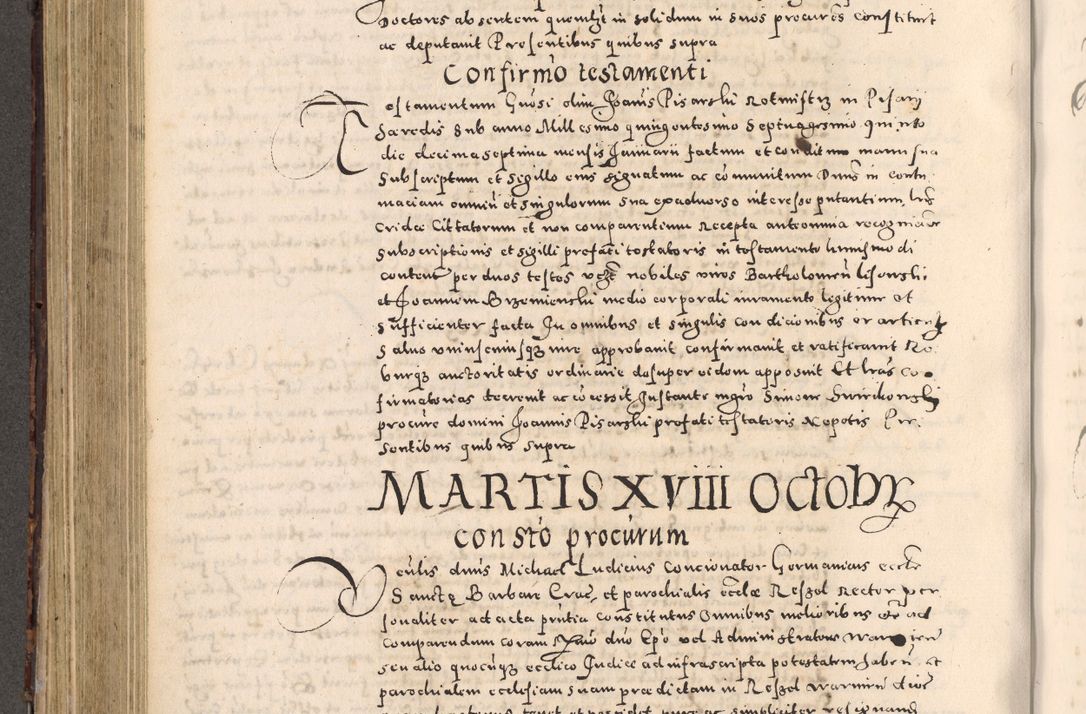 Doctores absentem quemlibet in solidum in suos procures constituit
ac deputavit Presentibus quibus supra
Confirmo testamenti
Testamentum Gnosi olim Joanis Pisarski Rotmistrz in Pisary
Haeredis Sub anno Millesimo quingentesimo Septuagesimo quinto
die decima septima mensis Januarii factum et conditum manu sua
Subscriptum et sigillo eius signatum ac communitum Dnus in contu
maciam omniu et singulorum sua ex adverso interesse putantium, lris
Cridae Cittatorum et non comparentium recepta ante omnia recognicione
subscriptionis et sigilli prefati testatoris in testamento huiusmodi
content per duos testes nobiles viros Bartholomeu
et Joannem Brzemienski medio corporali iuramento legitime et
sufficienter facta In omnibus et singulis condicionibus et articulis
Salvo uniuscuiusque iure approbavit confirmavit et ratificavit Ro
burque auctoritatis ordinarie desuper eidem apposuit Et lras co
firmatorias decrevit ac cocessit Instante mgro Simone
procure domini Joannis Pisarski prefati testatoris Nepotis Pre
sentibus quibus supra
MARTIS XVIII Octobrz
consto procurum
Venlis dnus Michael Ludicius Concionator Germanicus eccte
Sanctae Barbare Crac, et parochialis ecclae Reszel Rector per
sonaliter ad acta pntia constitutus Omnibus melioribus et ad
comparendum coram Rmo dno Epo vel Administratore Warmien
seu alio quocumque ecclico Judice ad infrascripta potestatem haben et
parochialem ecclesiam suam praedictam in Reszel Warmien dioc
tenet et possidet pure ac simpliciter resignand